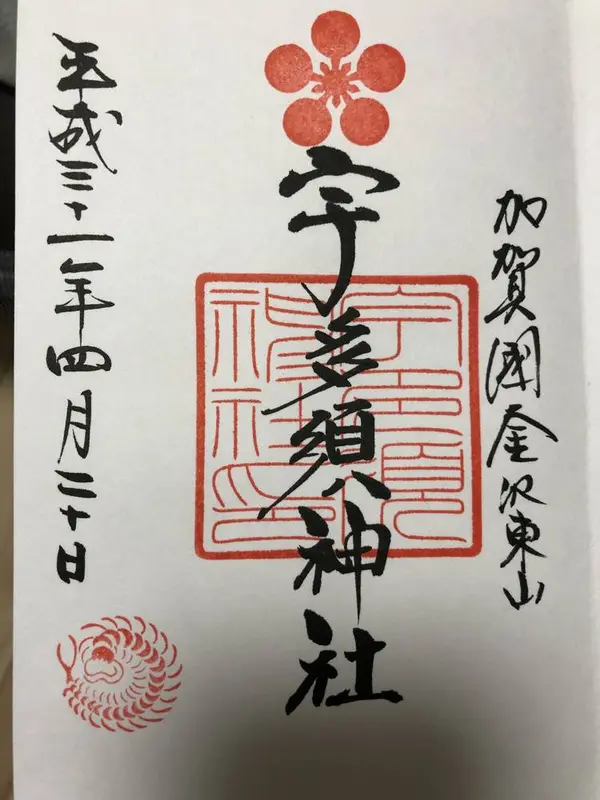 加賀國金沢東山
宇多須神社
平成三十一年四月二十日